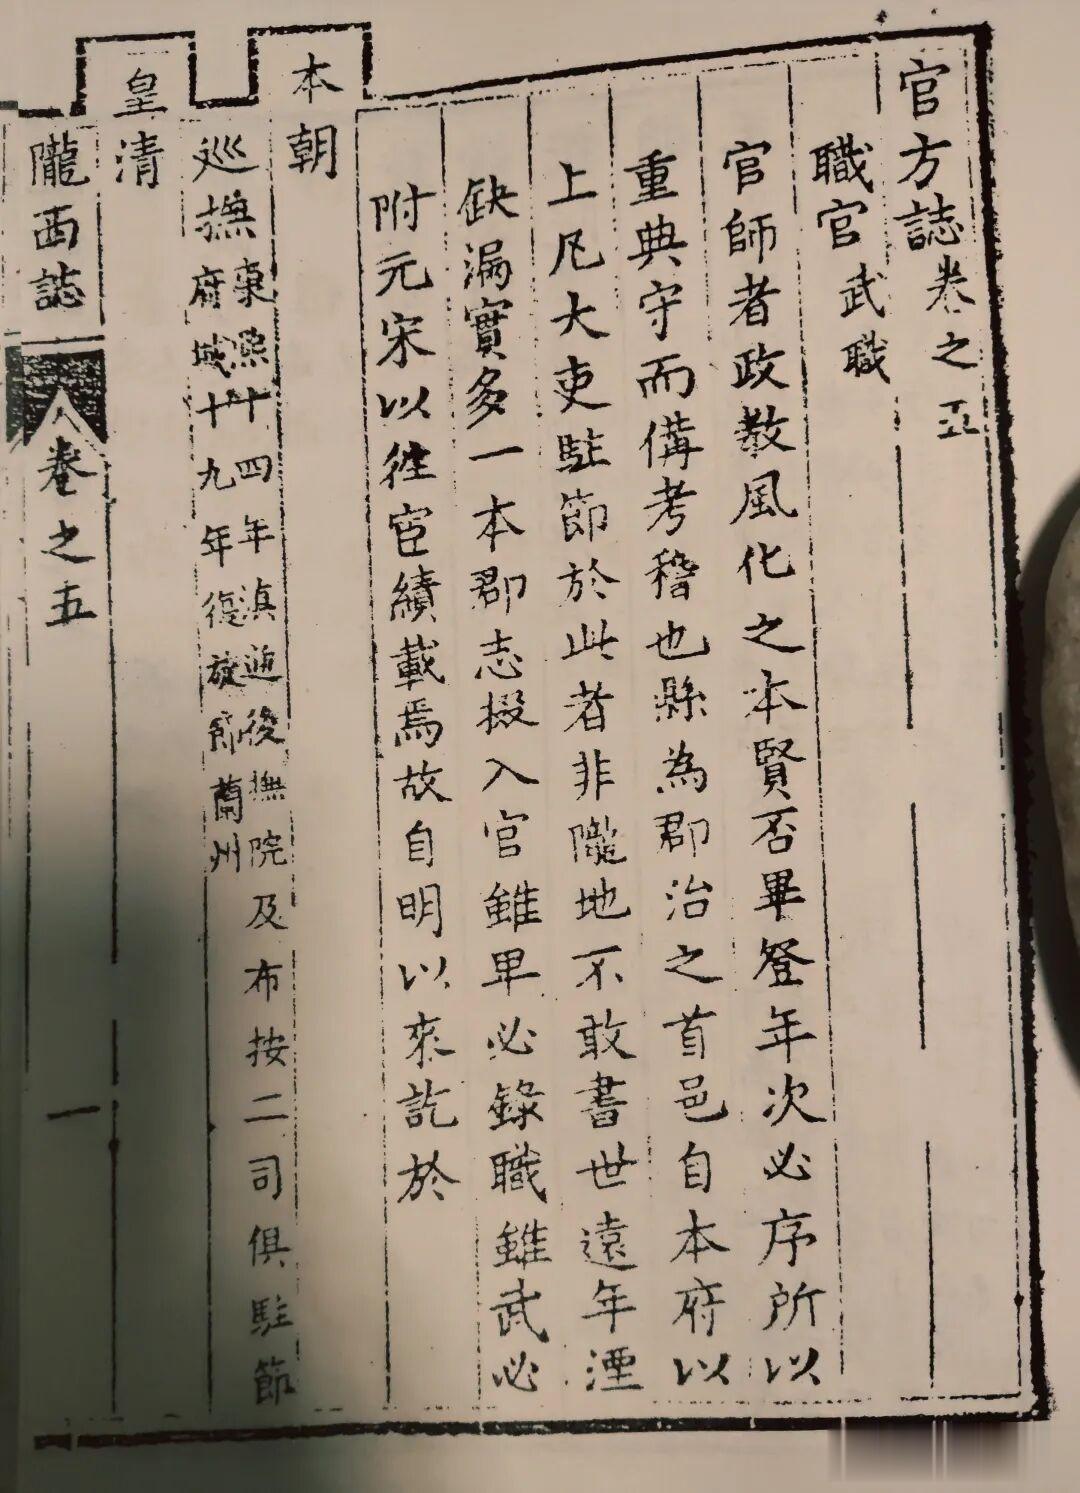 官方誌卷之五
職官 武職
官師者政教風化之本賢否畢登年次必序所以
重典守而備考稽也縣為郡治之首邑自本府以
上凡大吏駐節於此者非隴地不敢書世遠年湮
缺漏實多一本郡志掇入官雖卑必錄職雖武必
附元宋以往宦績載焉故自明以來訖於
本朝
巡撫 康熙十四年滇逆後撫院及布按二司俱駐節
府城十九年復旋節蘭州
皇清
隴西誌 卷之五 一